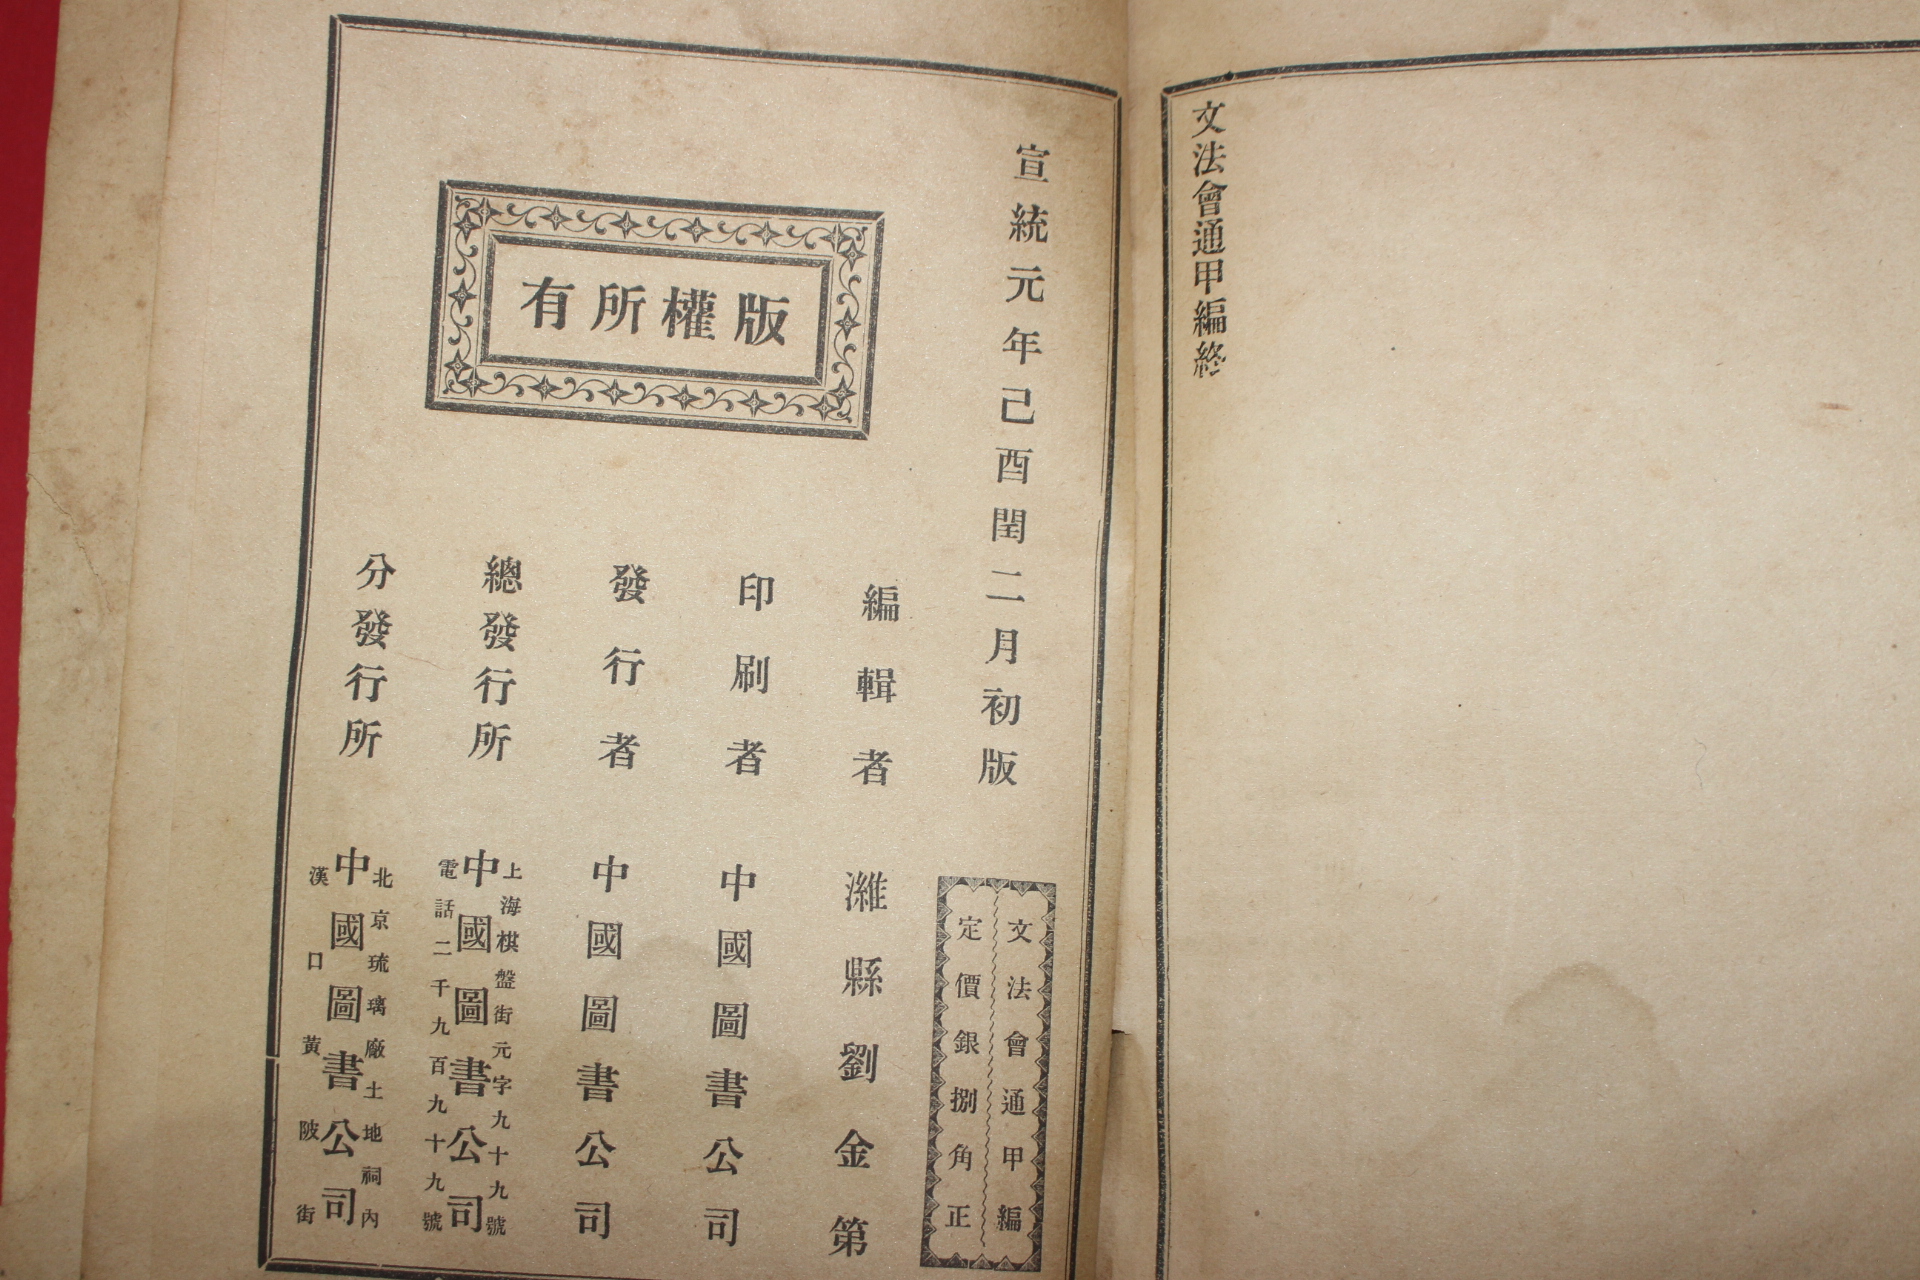 文法會通甲編終
宣統元年己酉閏二月初版
文法會通甲編
定價銀捌角正
版權所有
編輯者 濰縣劉金第
印刷者 中國圖書公司
發行者 中國圖書公司
總發行所 中國圖書公司
上海棋盤街元字九十九號
電話二千九百九十九號
分發行所 中國圖書公司
北京琉璃廠土地祠內
漢口黃陂街